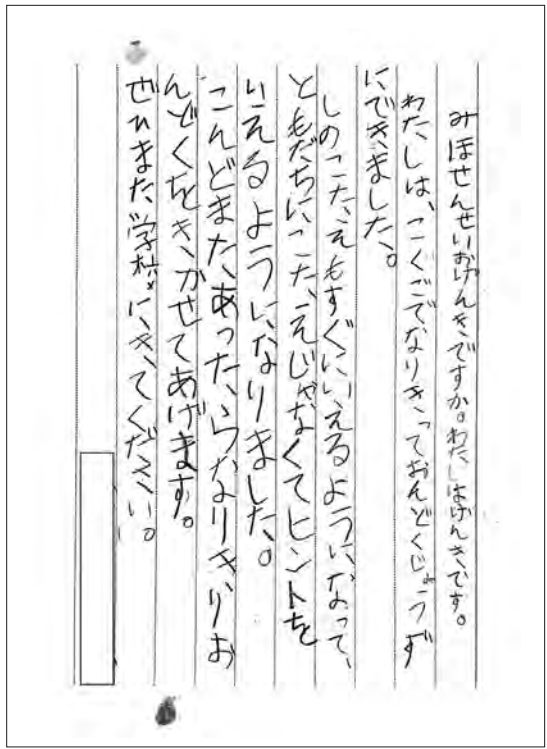 みほせんせいおげんきですか。わたしはげんきです。
わたしは、こくごでなりきっておんどくじょうず
にできました。
しのこたえもすぐにいえるようになって、
ともだちにこたえじゃなくてヒントを
いえるようになりました。
こんどまたあったらなりきりお
んどくをきかせてあげます。
ぜひまた学校にきてください。